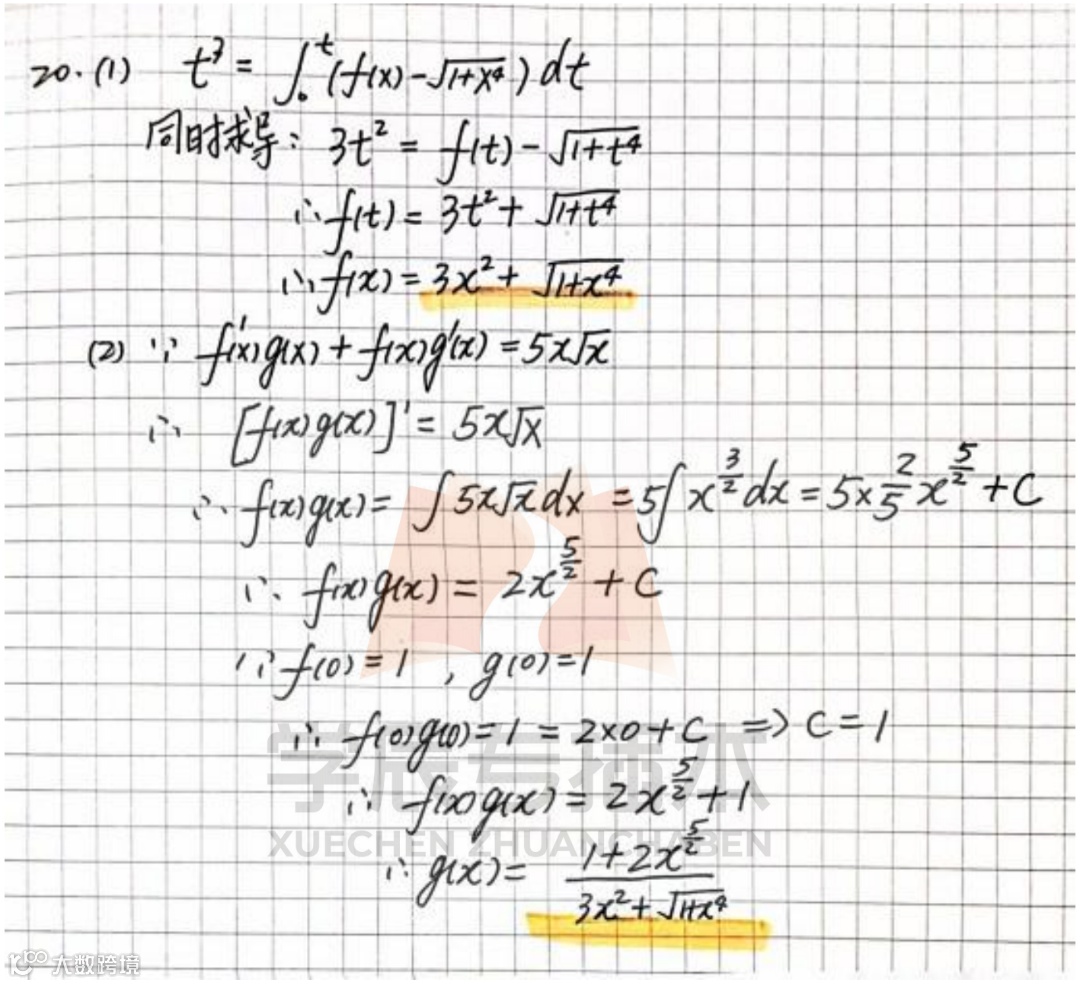 20.(1) t³ = ∫₀ᵗ (f(x) - √(1+x⁴)) dt
同时求导: 3t² = f(t) - √(1+t⁴)
∴ f(t) = 3t² + √(1+t⁴)
∴ f(x) = 3x² + √(1+x⁴)
(2) ∵ f'(x)g(x) + f(x)g'(x) = 5x√x
∴ [f(x)g(x)]' = 5x√x
∴ f(x)g(x) = ∫5x√x dx = 5∫x^(3/2) dx = 5×2/5 x^(5/2) + C
∴ f(x)g(x) = 2x^(5/2) + C
∵ f(0) = 1 , g(0) = 1
∴ f(0)g(0) = 1 = 2×0 + C => C = 1
∴ f(x)g(x) = 2x^(5/2) + 1
∴ g(x) = (1+2x^(5/2))/(3x² + √(1+x⁴))
学辰专插本
XUECHEN ZHUANCHABEN
大数跨境